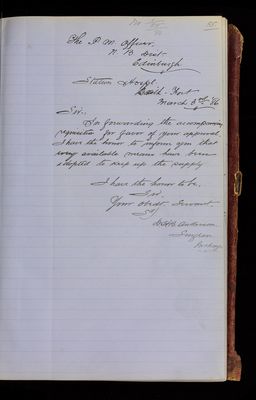 55.
The P. M. Officer,
N. B. Dist.
Edinburgh
Station Hospl.
Leith Fort
March 6th /86
Sir,
In forwarding the accompanying
requisition for favor of your approval
I have the honor to inform you that
every available means have been
adopted to keep up the supply
I have the honor to be,
Sir,
Your Obedt. Servant.
Anderson
Surgeon